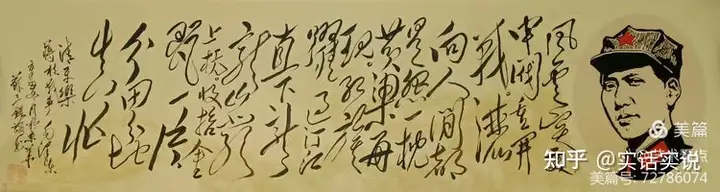 风云突变
军阀重开
战洒
向人间都
是怨一枕
黄粱再
现红旗
跃过汀江
直下龙
岩上杭收拾金
瓯一片
分田分地
真忙
清平乐
蒋桂战争 毛泽东
美篇
知乎 @实话实说
美篇号: 72786074